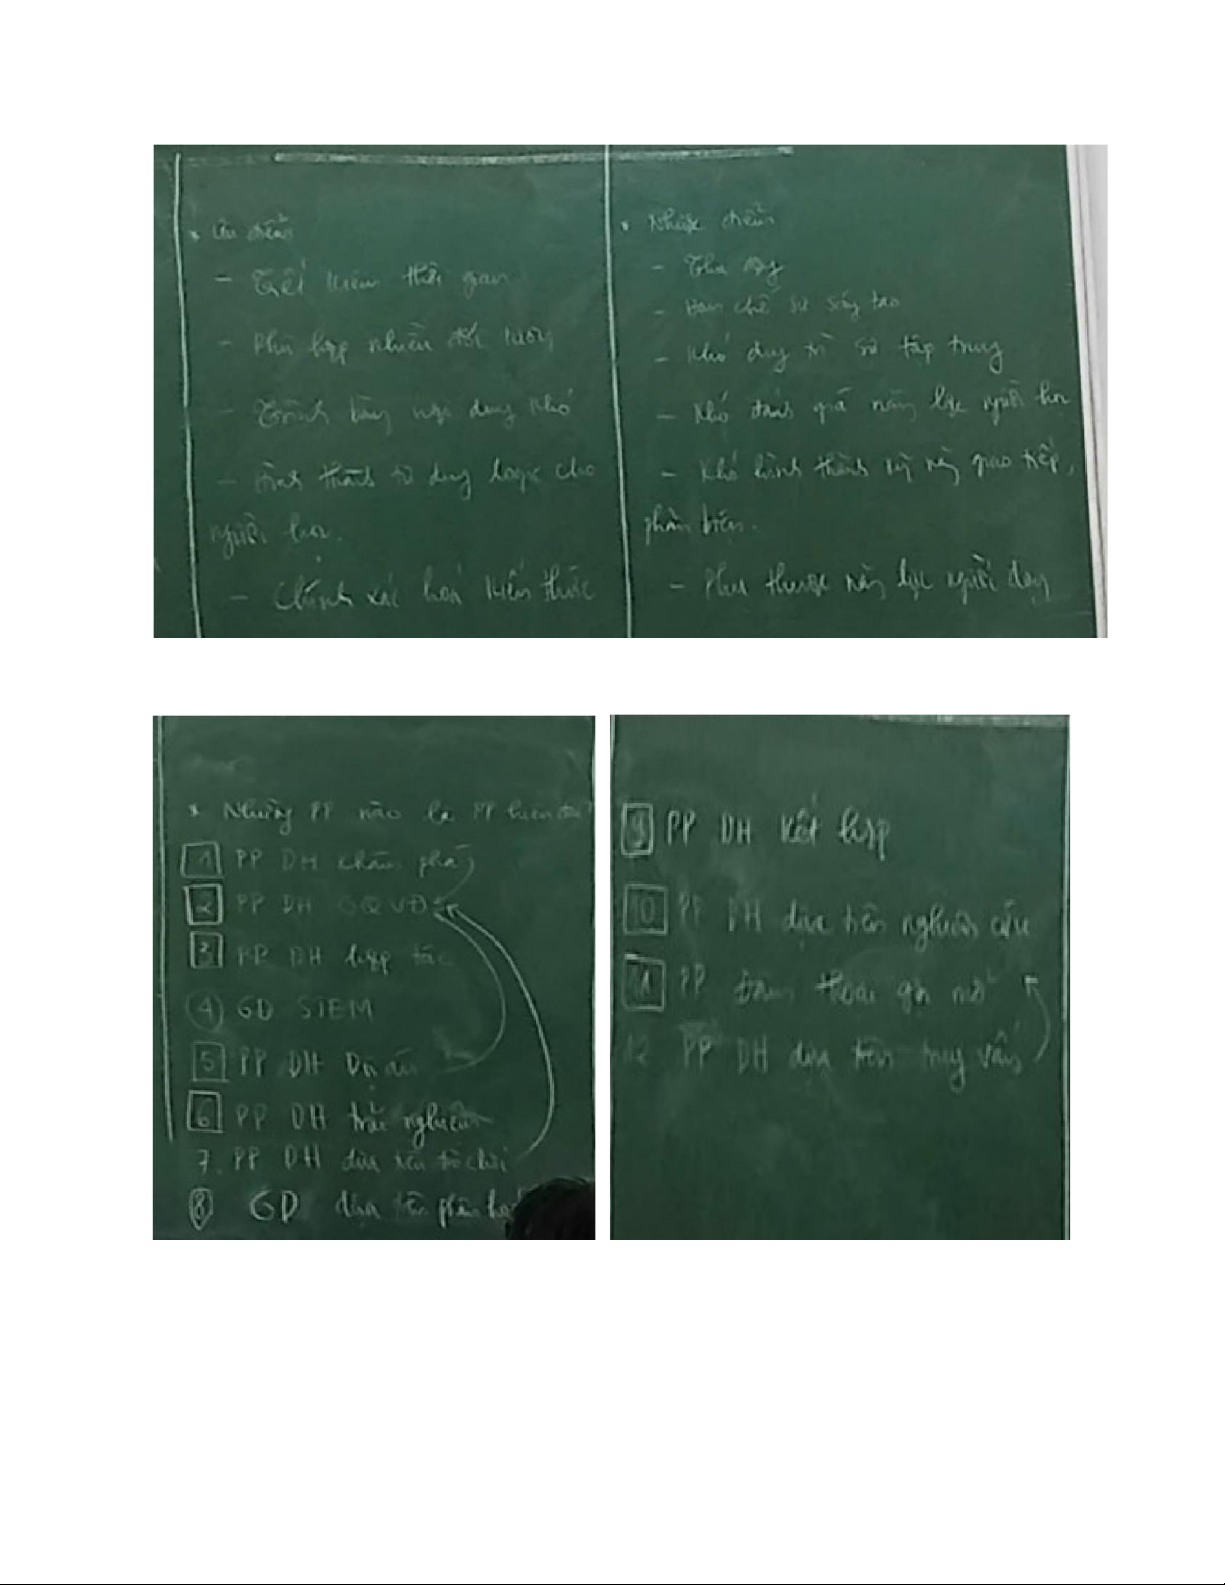 * Ưu điểm
- Tiết kiệm thời gian
- Phù hợp nhiều đối tượng
- Trình bày nội dung khó
- Hình thành tư duy logic cho
người học.
- Chính xác hoá kiến thức
* Nhược điểm
- Thụ động
- Hạn chế sự sáng tạo
- Khó duy trì sự tập trung
- Khó đánh giá năng lực người học
- Khó hình thành kỹ năng giao tiếp,
phản biện.
- Phụ thuộc năng lực người dạy
* Những PP nào là PP hiện đại?
1 PP DH khám phá
2 PP DH GQVĐ
3 PP DH hợp tác
4 GD STEM
5 PP DH Dự án
6 PP DH trải nghiệm
7. PP DH dựa trên trò chơi
8 GD dựa trên phân hoá
9 PP DH kết hợp
10 PP DH dựa trên nghiên cứu
11 PP Đàm thoại gợi mở
12 PP DH dựa trên truy vấn